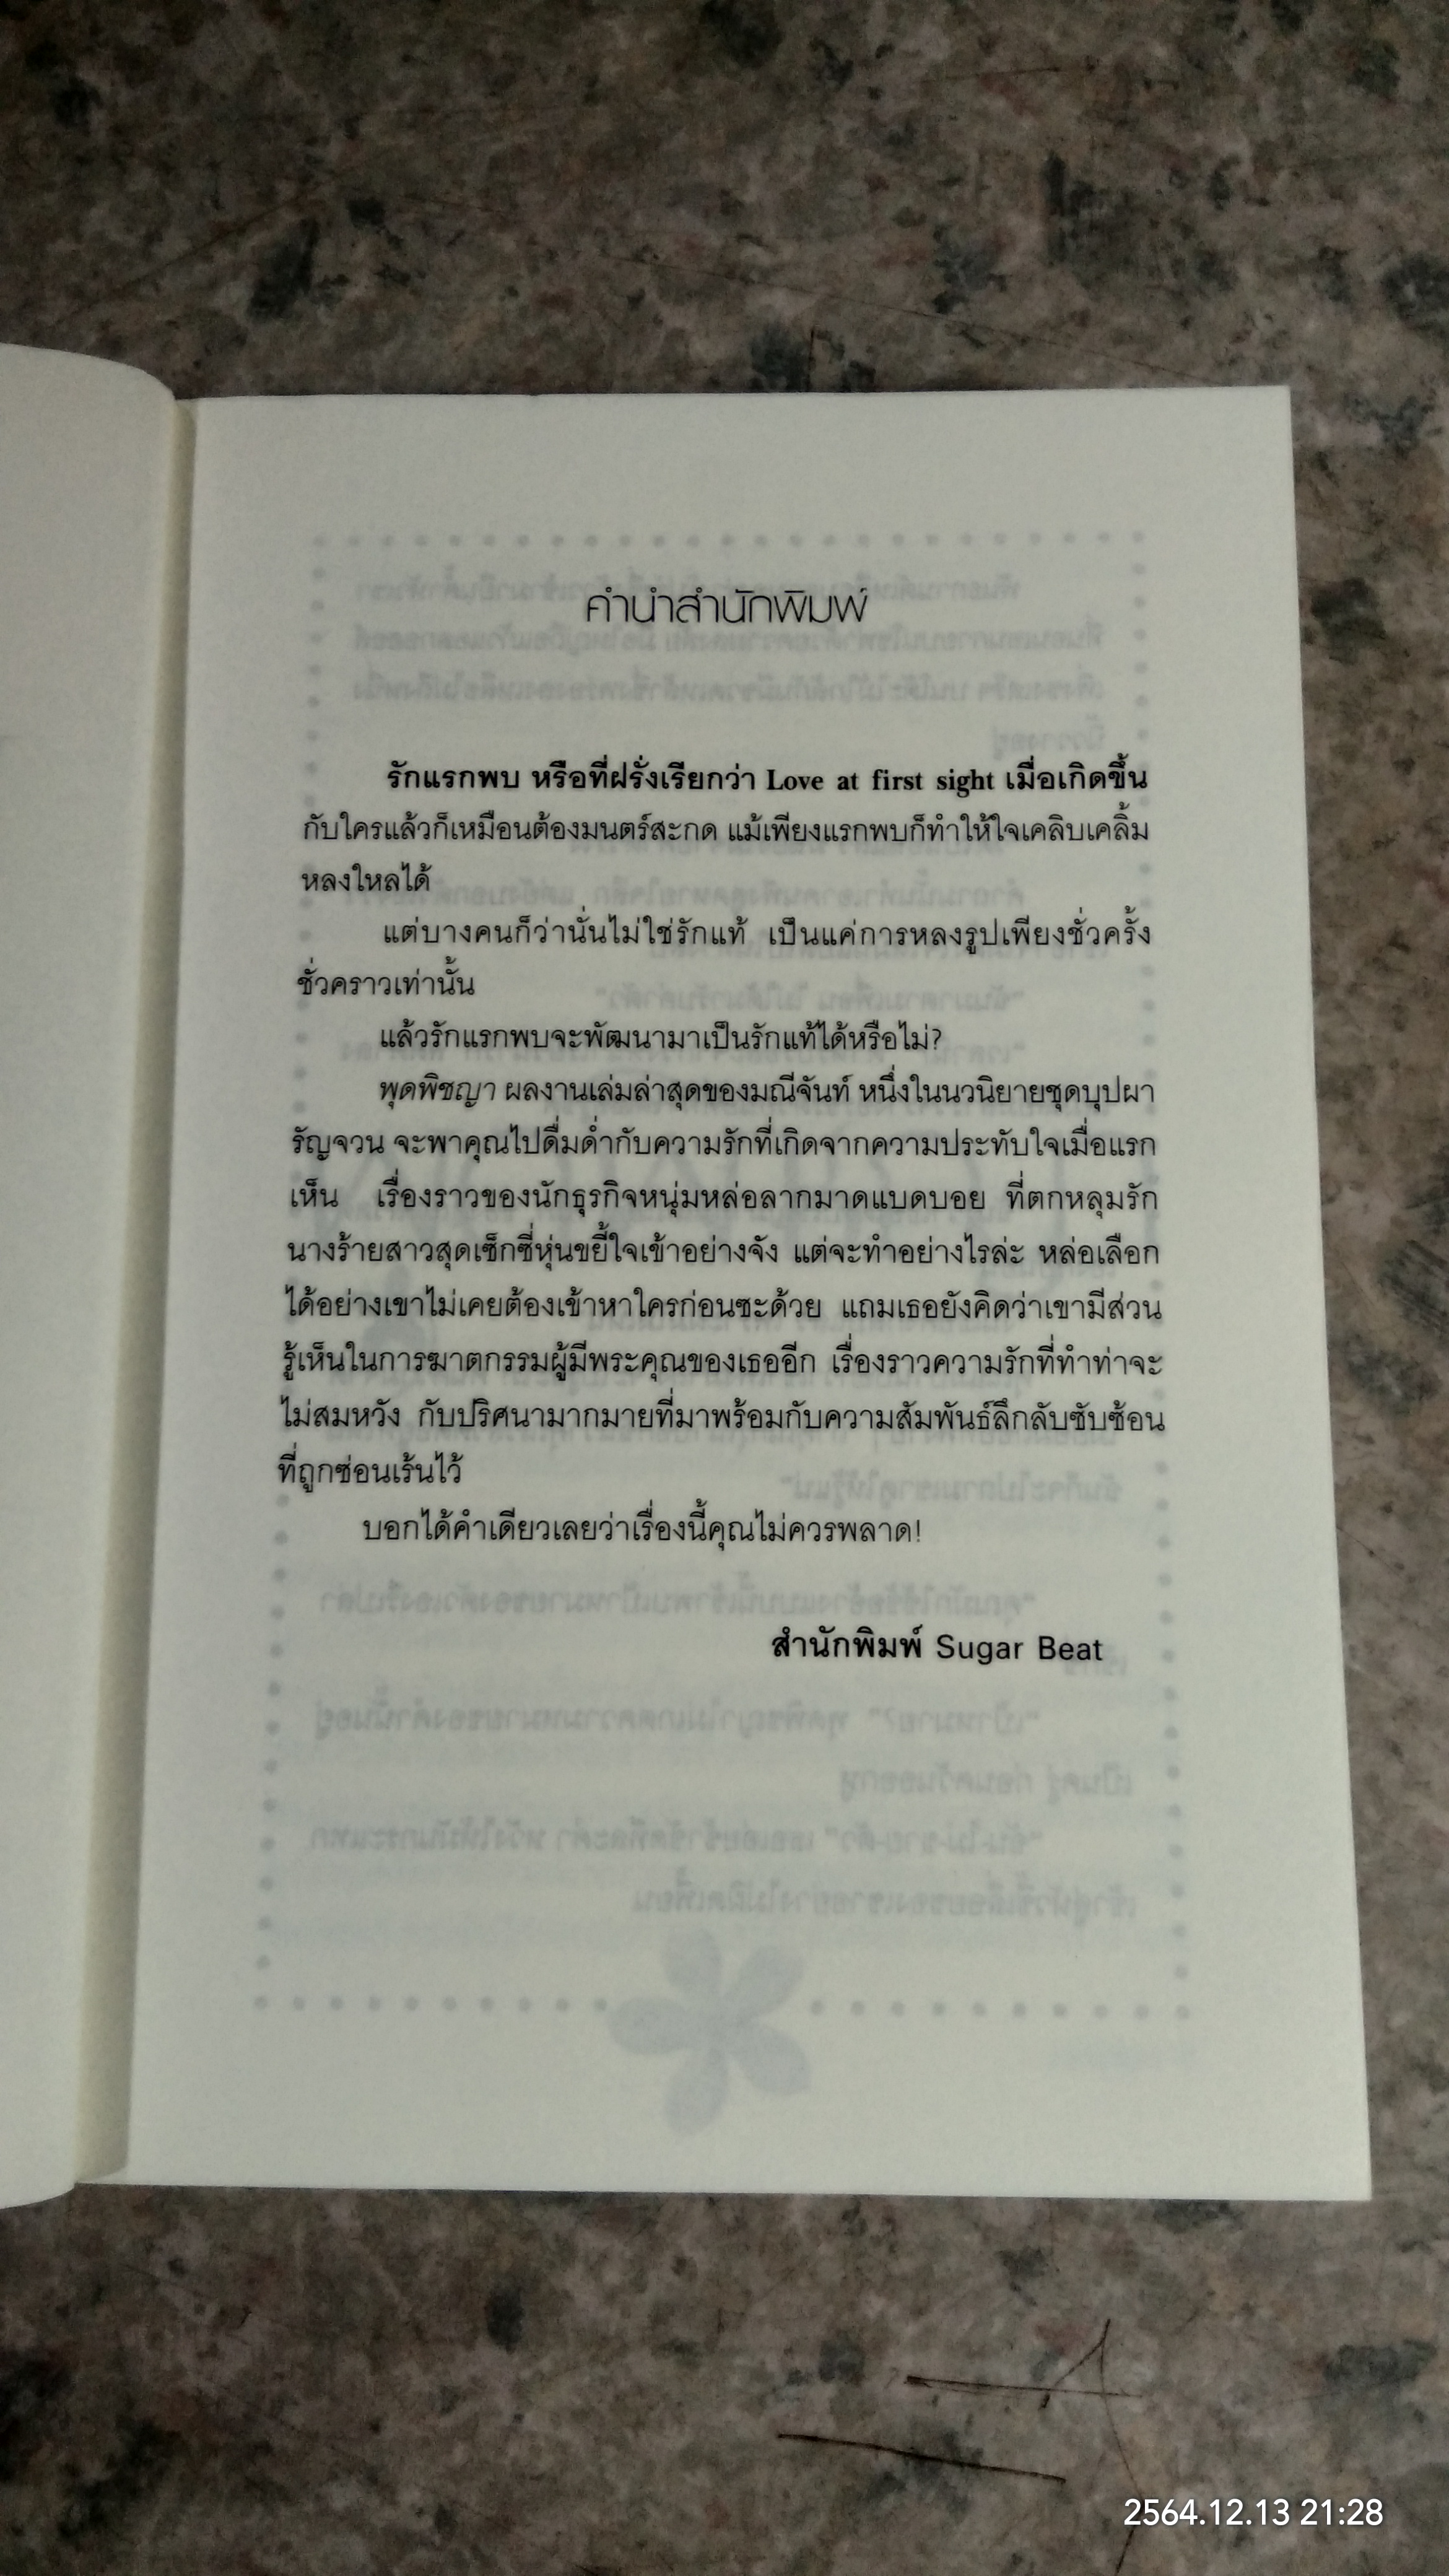 คำนำสำนักพิมพ์
รักแรกพบ หรือที่ฝรั่งเรียกว่า Love at first sight เมื่อเกิดขึ้น
กับใครแล้วก็เหมือนต้องมนตร์สะกด แม้เพียงแรกพบก็ทำให้ใจเคลิบเคลิ้ม
หลงใหลได้
แต่บางคนก็ว่านั่นไม่ใช่รักแท้ เป็นแค่การหลงรูปเพียงชั่วครั้ง
ชั่วคราวเท่านั้น
แล้วรักแรกพบจะพัฒนามาเป็นรักแท้ได้หรือไม่?
พุดพิชญา ผลงานเล่มล่าสุดของมณีจันท์ หนึ่งในนวนิยายชุดบุปผา
รัญจวน จะพาคุณไปดื่มด่ำกับความรักที่เกิดจากความประทับใจเมื่อแรก
เห็น เรื่องราวของนักธุรกิจหนุ่มหล่อลากมาดแบดบอย ที่ตกหลุมรัก
นางร้ายสาวสุดเซ็กซี่หุ่นขยี้ใจเข้าอย่างจัง แต่จะทำอย่างไรล่ะ หล่อเลือก
ได้อย่างเขาไม่เคยต้องเข้าหาใครก่อนซะด้วย แถมเธอยังคิดว่าเขามีส่วน
รู้เห็นในการฆาตกรรมผู้มีพระคุณของเธออีก เรื่องราวความรักที่ทำท่าจะ
ไม่สมหวัง กับปริศนามากมายที่มาพร้อมกับความสัมพันธ์ลึกลับซับซ้อน
ที่ถูกซ่อนเร้นไว้
บอกได้คำเดียวเลยว่าเรื่องนี้คุณไม่ควรพลาด!
สำนักพิมพ์ Sugar Beat
2564.12.13 21:28